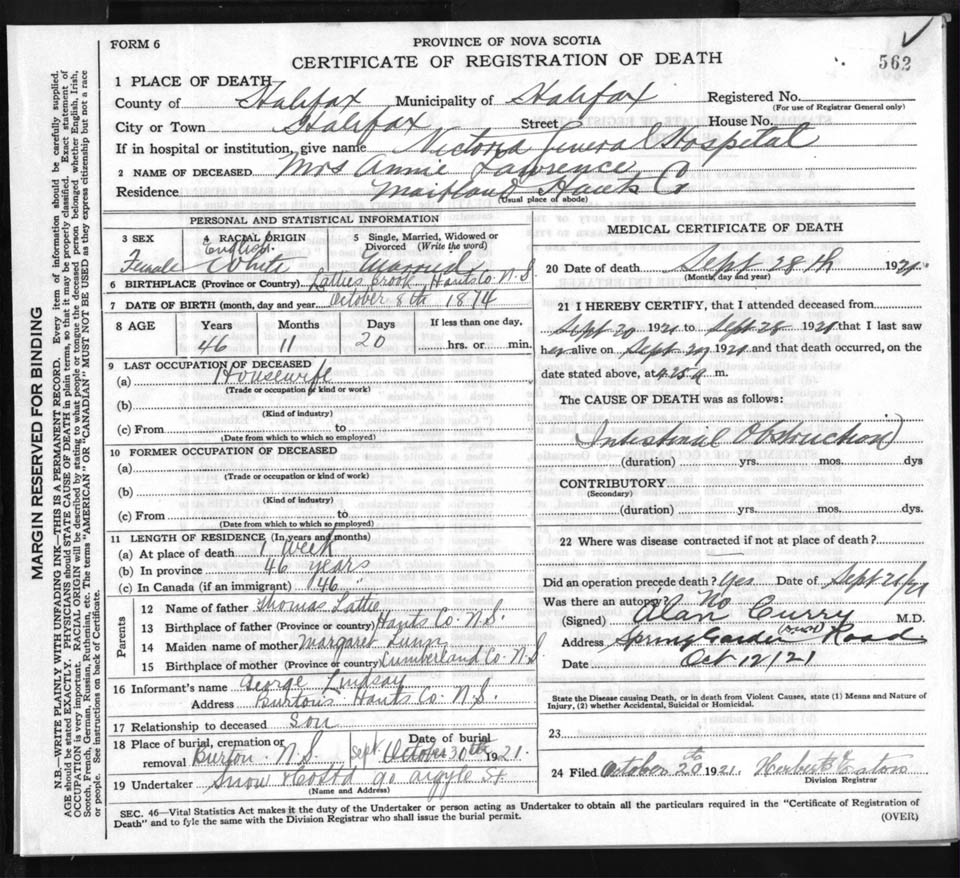 FORM 6
PROVINCE OF NOVA SCOTIA
CERTIFICATE OF REGISTRATION OF DEATH
562
1 PLACE OF DEATH
County of Halifax Municipality of Halifax Registered No.
(For use of Registrar General only)
City or Town Halifax Street House No.
If in hospital or institution, give name Victoria General Hospital
2 NAME OF DECEASED Mrs Annie Lawrence
Residence Maitland Hants Co
(Usual place of abode)
PERSONAL AND STATISTICAL INFORMATION
3 SEX 4 RACIAL ORIGIN 5 Single, Married, Widowed or Divorced (Write the word)
English
Female White Married
6 BIRTHPLACE (Province or Country) Latties Brook, Hants Co N.S.
7 DATE OF BIRTH (month, day and year) October 8th 1874
8 AGE Years Months Days If less than one day,
46 11 20 hrs. or min.
9 LAST OCCUPATION OF DECEASED
(a) Housewife
(Trade or occupation or kind or work)
(b)
(Kind of industry)
(c) From to
(Date from which to which so employed)
10 FORMER OCCUPATION OF DECEASED
(a)
(Trade or occupation or kind of work)
(b)
(Kind of industry)
(c) From to
(Date from which to which so employed)
11 LENGTH OF RESIDENCE (In years and months)
(a) At place of death 1 week
(b) In province 46 years
(c) In Canada (if an immigrant) 46 "
Parents
12 Name of father Thomas Lattie
13 Birthplace of father (Province or country) Hants Co. N.S.
14 Maiden name of mother Margaret
15 Birthplace of mother (Province or country) Cumberland Co. N.S
16 Informant's name George Lindsay
Address Burtons Hants Co. N.S.
17 Relationship to deceased Son
18 Place of burial, cremation or removal Burton N.S. Date of burial Sept October 30th 1921.
19 Undertaker Snow & Co Ltd 90 Argyle St.
(Name and Address)
MEDICAL CERTIFICATE OF DEATH
20 Date of death Sept 28th 1921.
(Month, day and year)
21 I HEREBY CERTIFY, that I attended deceased from
Sept 20 1921 to Sept 28 1921 that I last saw
her alive on Sept 1921 and that death occurred, on the
date stated above, at 4.25 a. m.
The CAUSE OF DEATH was as follows:
Intestinal Obstruction
(duration) yrs. mos. dys
CONTRIBUTORY
(Secondary)
(duration) yrs. mos. dys.
22 Where was disease contracted if not at place of death?
Did an operation precede death? Yes Date of Sept 21/21
Was there an autopsy? No
(Signed) Alan Curry M.D.
Address Spring Garden Road
Date Oct 12/21
State the Disease causing Death, or in death from Violent Causes, state (1) Means and Nature of
Injury, (2) whether Accidental, Suicidal or Homicidal.
23
24 Filed October 20th 1921. Herbert E Eaton
Division Registrar
SEC. 46—Vital Statistics Act makes it the duty of the Undertaker or person acting as Undertaker to obtain all the particulars required in the "Certificate of Registration of
Death" and to fyle the same with the Division Registrar who shall issue the burial permit.
(OVER)
MARGIN RESERVED FOR BINDING
N.B.—WRITE PLAINLY WITH UNFADING INK—THIS IS A PERMANENT RECORD. Every item of information should be carefully supplied.
AGE should be stated EXACTLY. PHYSICIANS should STATE CAUSE OF DEATH in plain terms, so that it may be properly classified. Exact statement of
OCCUPATION is very important. RACIAL ORIGIN will be described by stating to what people or tongue the deceased person belonged whether English, Irish,
Scotch, French, German, Russian, Ruthenian, etc. The terms "AMERICAN" or "CANADIAN" MUST NOT BE USED as they express citizenship but not a race
or people. See instructions on back of Certificate.